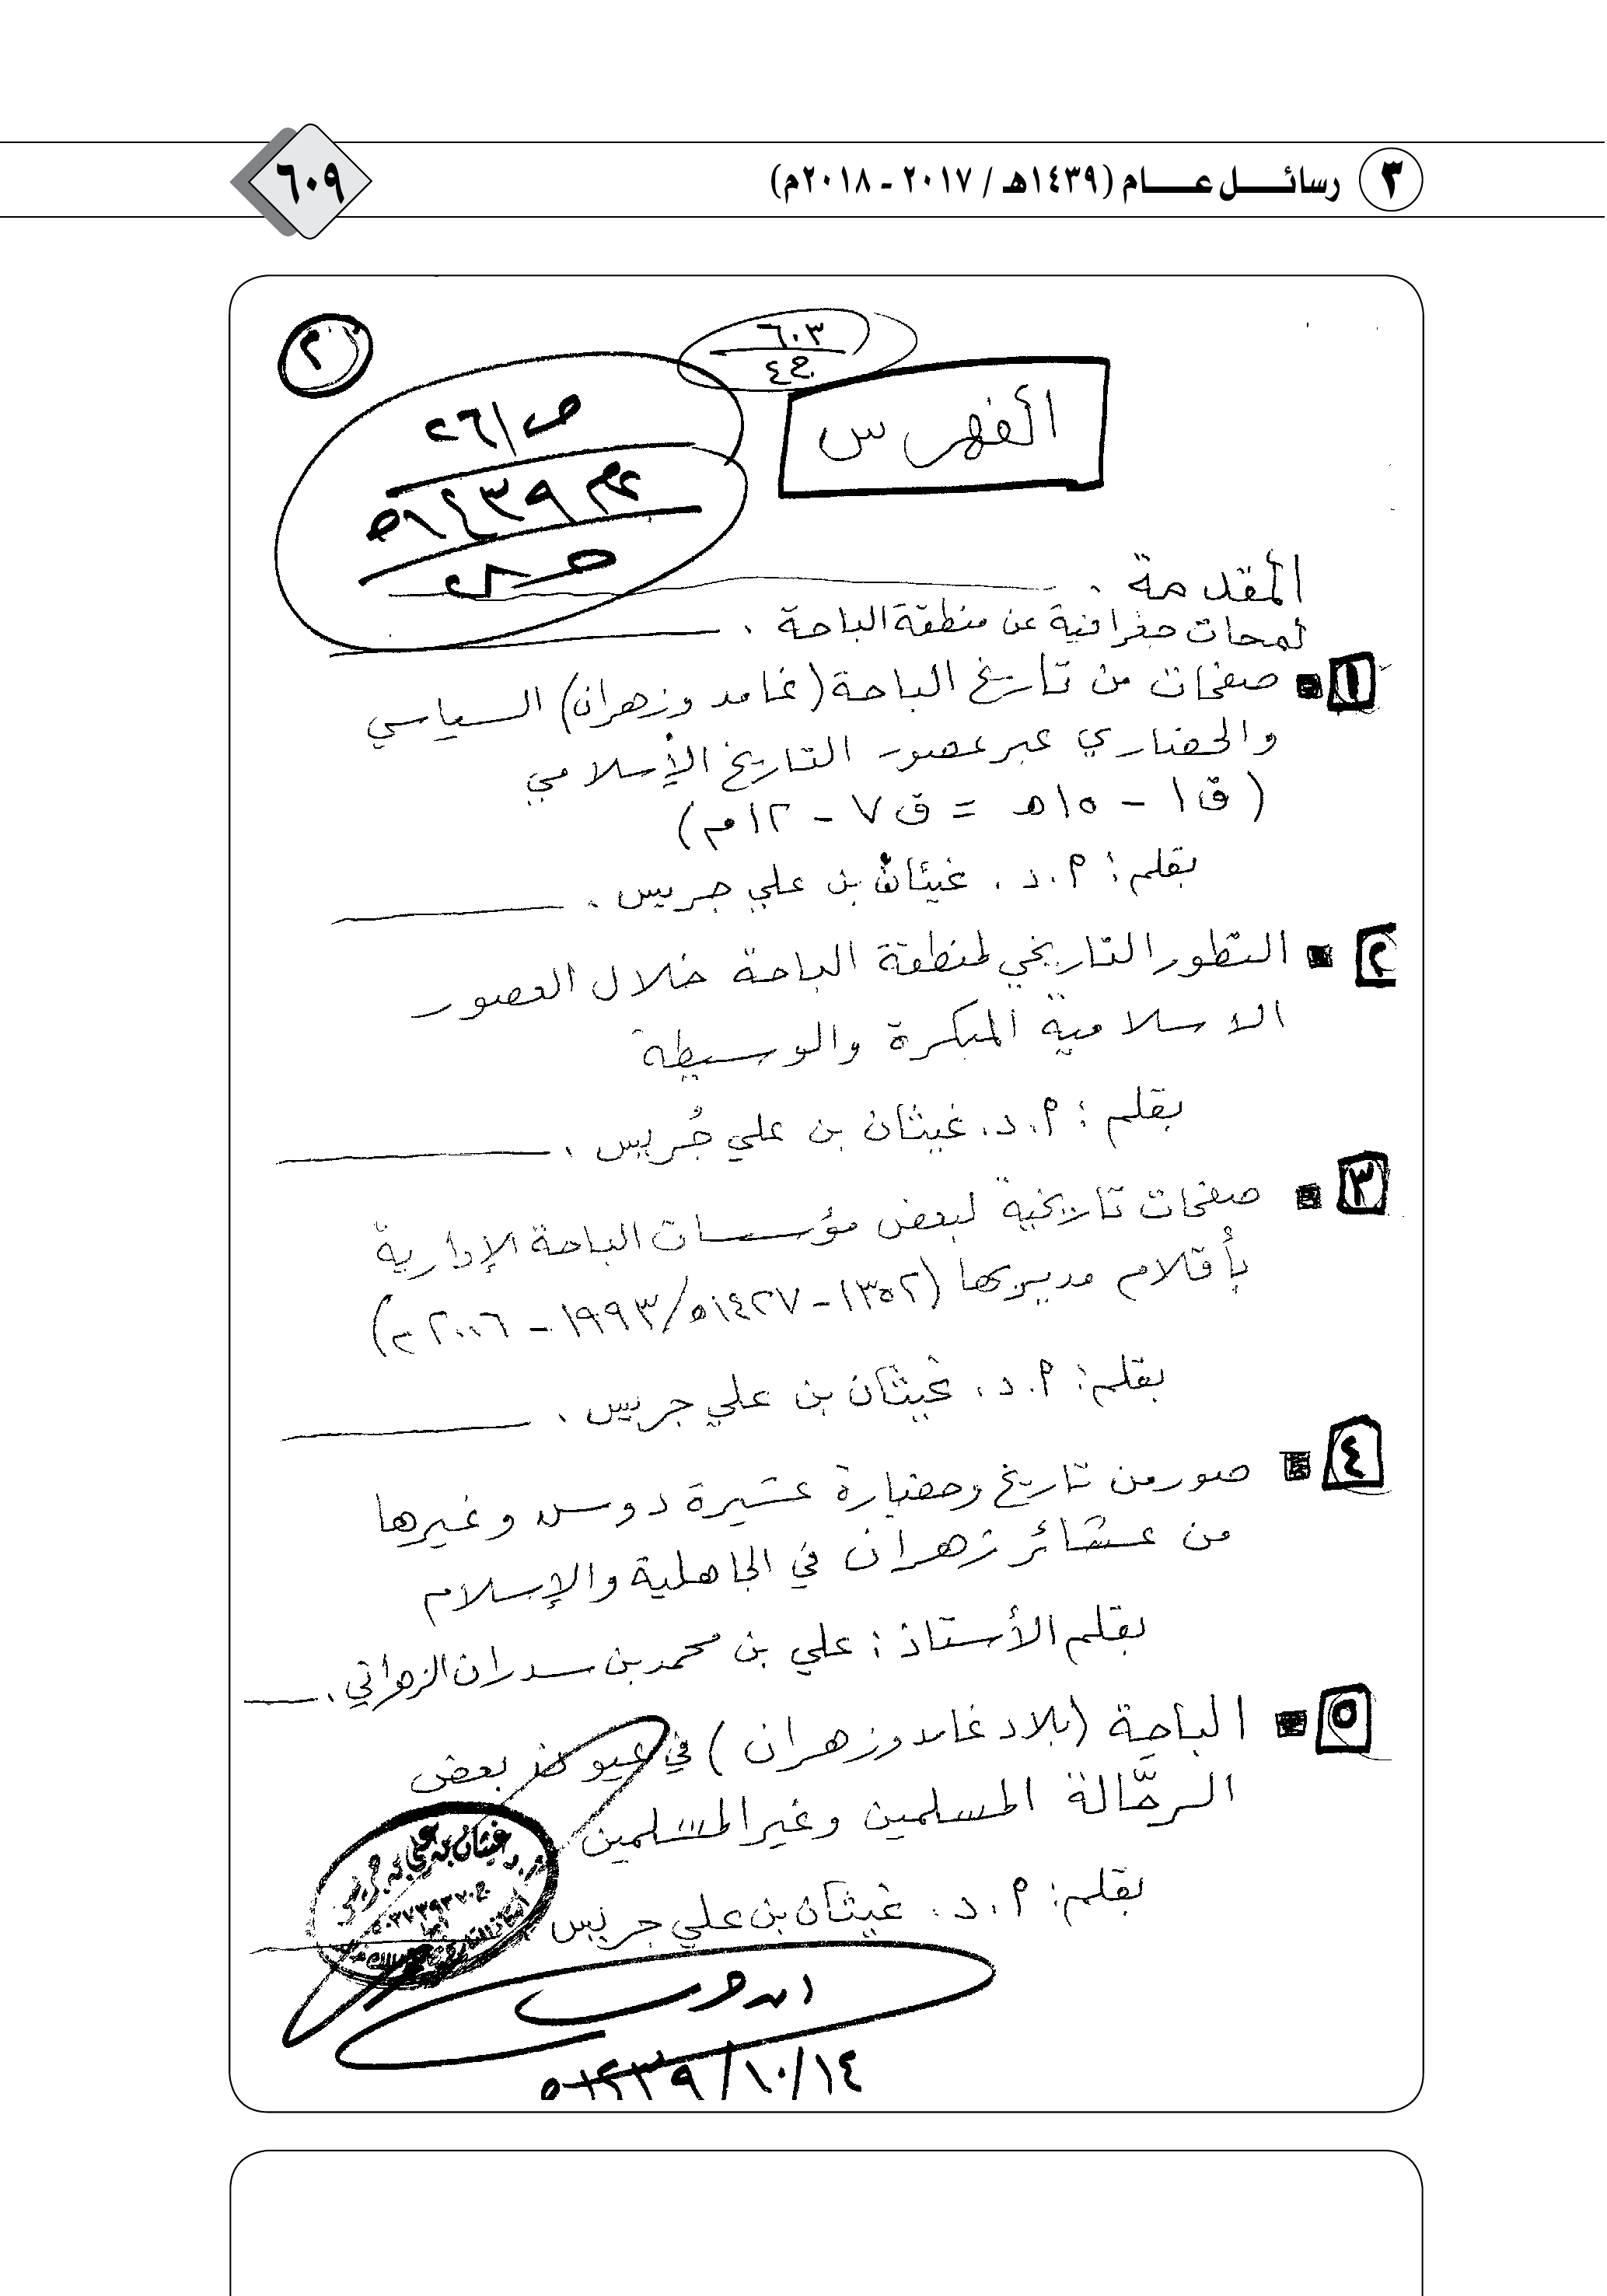 ٣ رسائل عام (١٤٣٩هـ / ٢٠١٧ - ٢٠١٨م)
٦٠٩
٢
٦٠٣
٤٤
ص/٢٦
الفهرس
١٤٣٩هـ
المقدمة .
لمحات جغرافية عن منطقة الباحة .
١ صفحات من تاريخ الباحة (غامد وزهران) السياسي
والحضاري عبر عصور التاريخ الإسلامي
(ق١ - ١٥هـ = ق٧ - ١٢م)
بقلم : أ.د. غيثان بن علي جريس .
٢ التطور التاريخي لمنطقة الباحة خلال العصور
الاسلامية المبكرة والوسيطة
بقلم : أ.د. غيثان بن علي جُريس .
٣ صفحات تاريخية لبعض مؤسسات الباحة الإدارية
بأقلام مديريها (١٣٥٢-١٤٢٧هـ/١٩٩٣ - ٢٠٠٦م)
بقلم : أ.د. غيثان بن علي جريس .
٤ صور من تاريخ وحضارة عشيرة دوس وغيرها
من عشائر زهران في الجاهلية والإسلام
بقلم الأستاذ : علي بن محمد بن سدران الزهراني .
٥ الباحة (بلاد غامد وزهران) في عيون بعض
الرحّالة المسلمين وغير المسلمين
بقلم : أ.د. غيثان بن علي جريس
أ.د. غيثان بن علي بن جريس
ابن جريس
١٤/١٠/١٤٣٩هـ